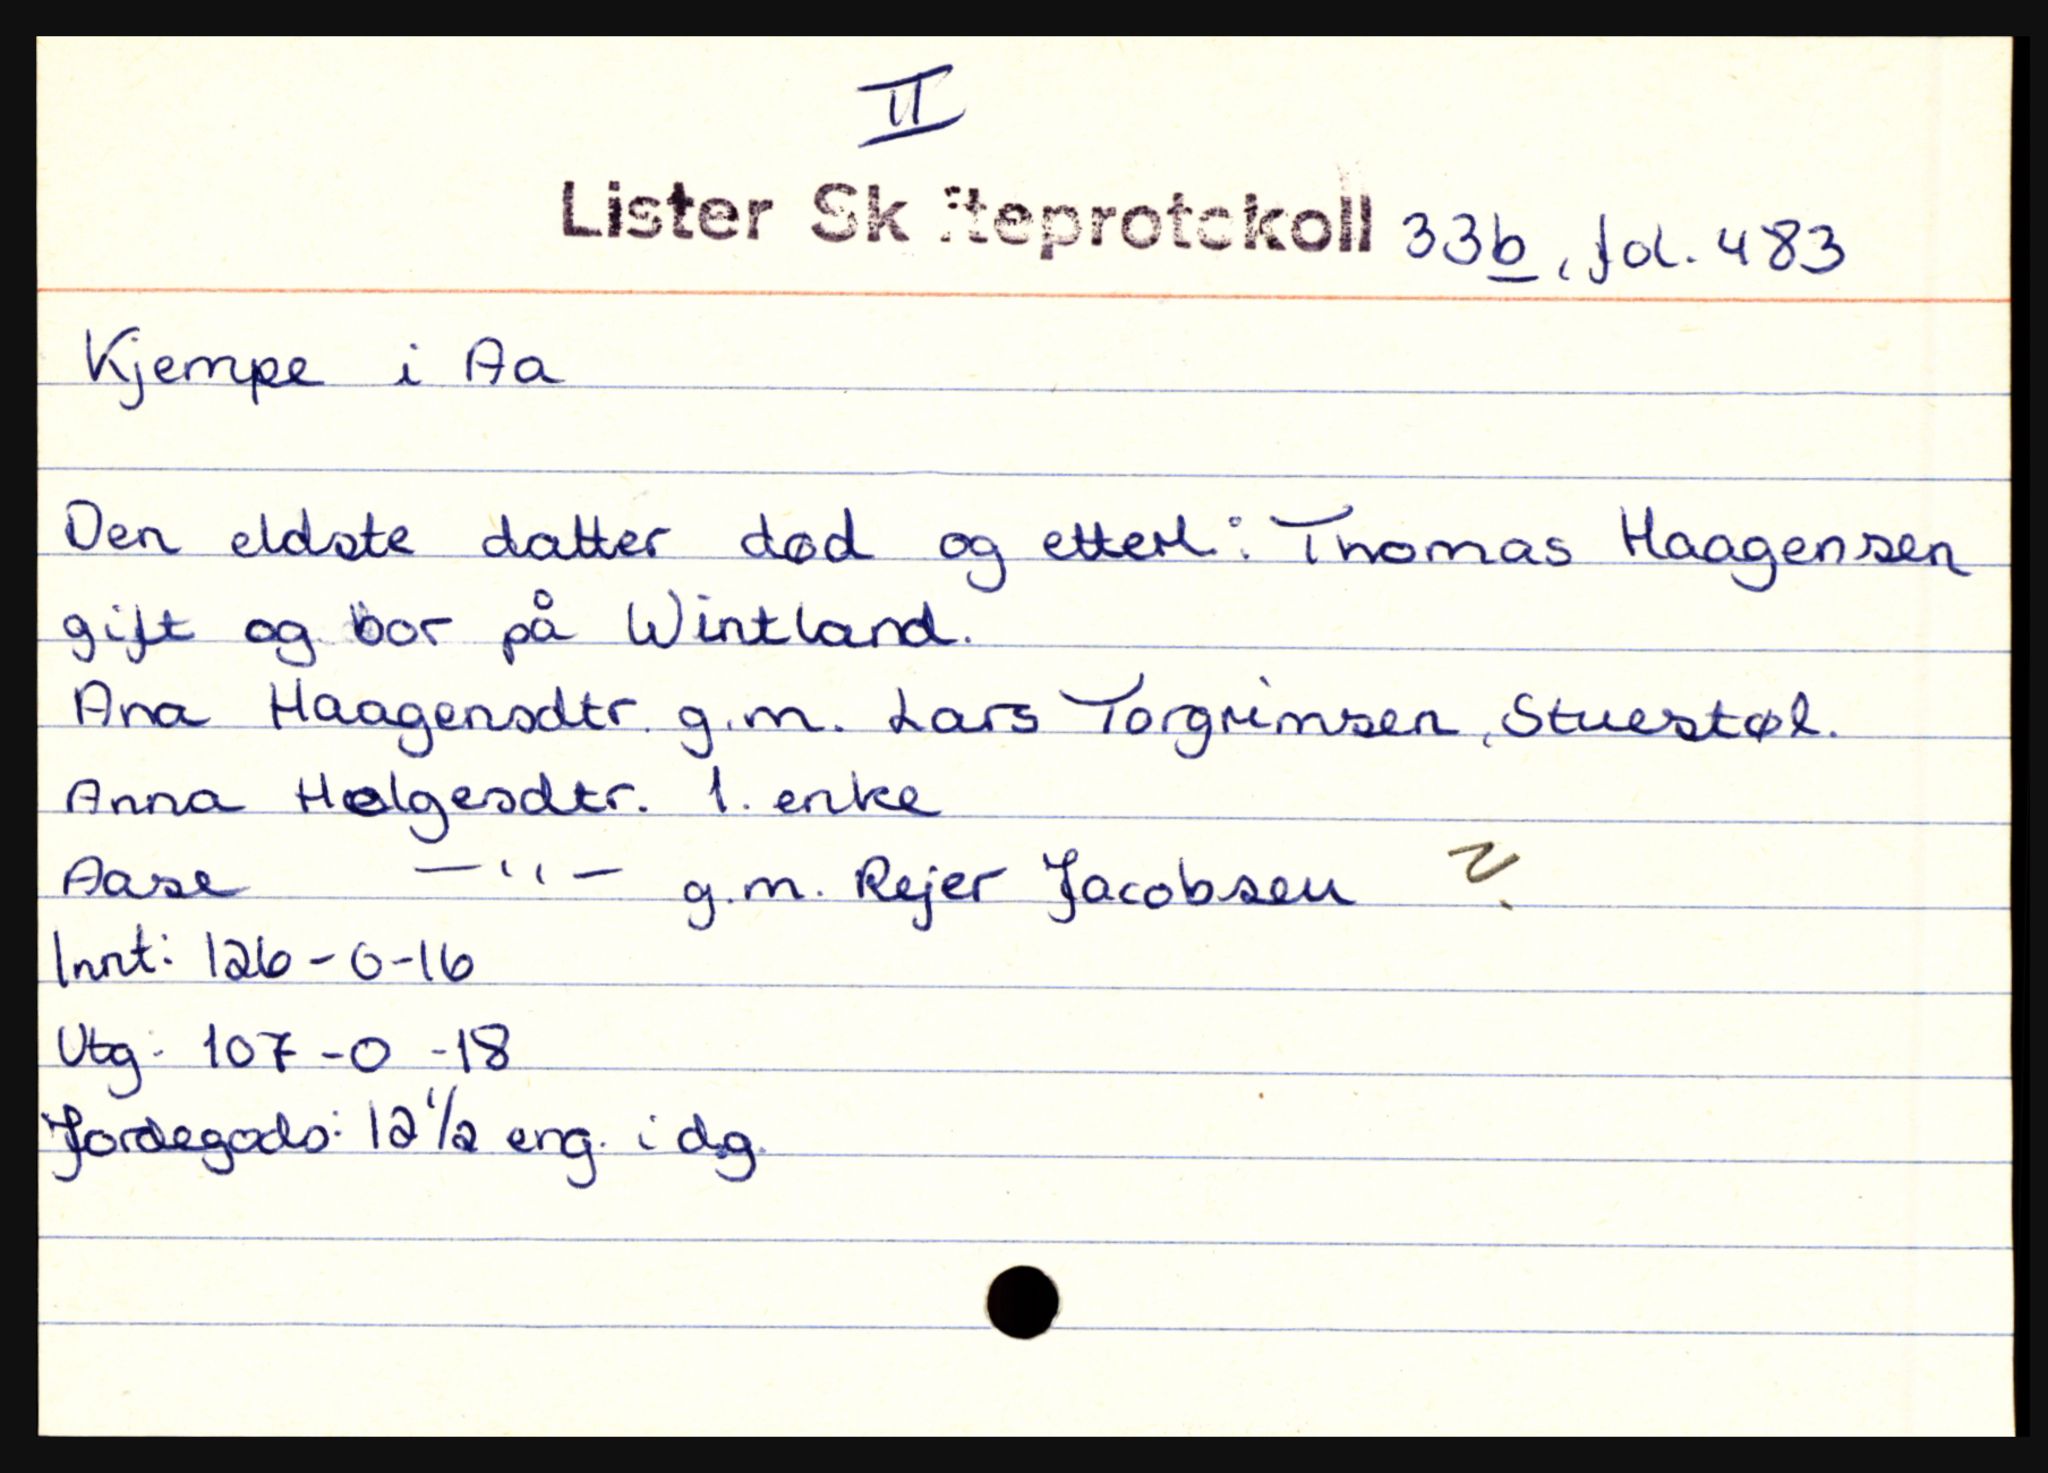 II
Lister Skifteprotokoll 33b, fol. 483
Kjempe i Aa
Den eldste datter død og etterl.: Thomas Haagensen
gift og bor på Wintland.
Ana Haagensdtr. g.m. Lars Torgrimsen, Stuestøl.
Anna Helgesdtr. 1. enke
Aase —"— g.m. Rejer Jacobsen ?
Innt: 126-0-16
Utg: 107-0-18
Jordegods: 12 1/2 eng. i d.g.